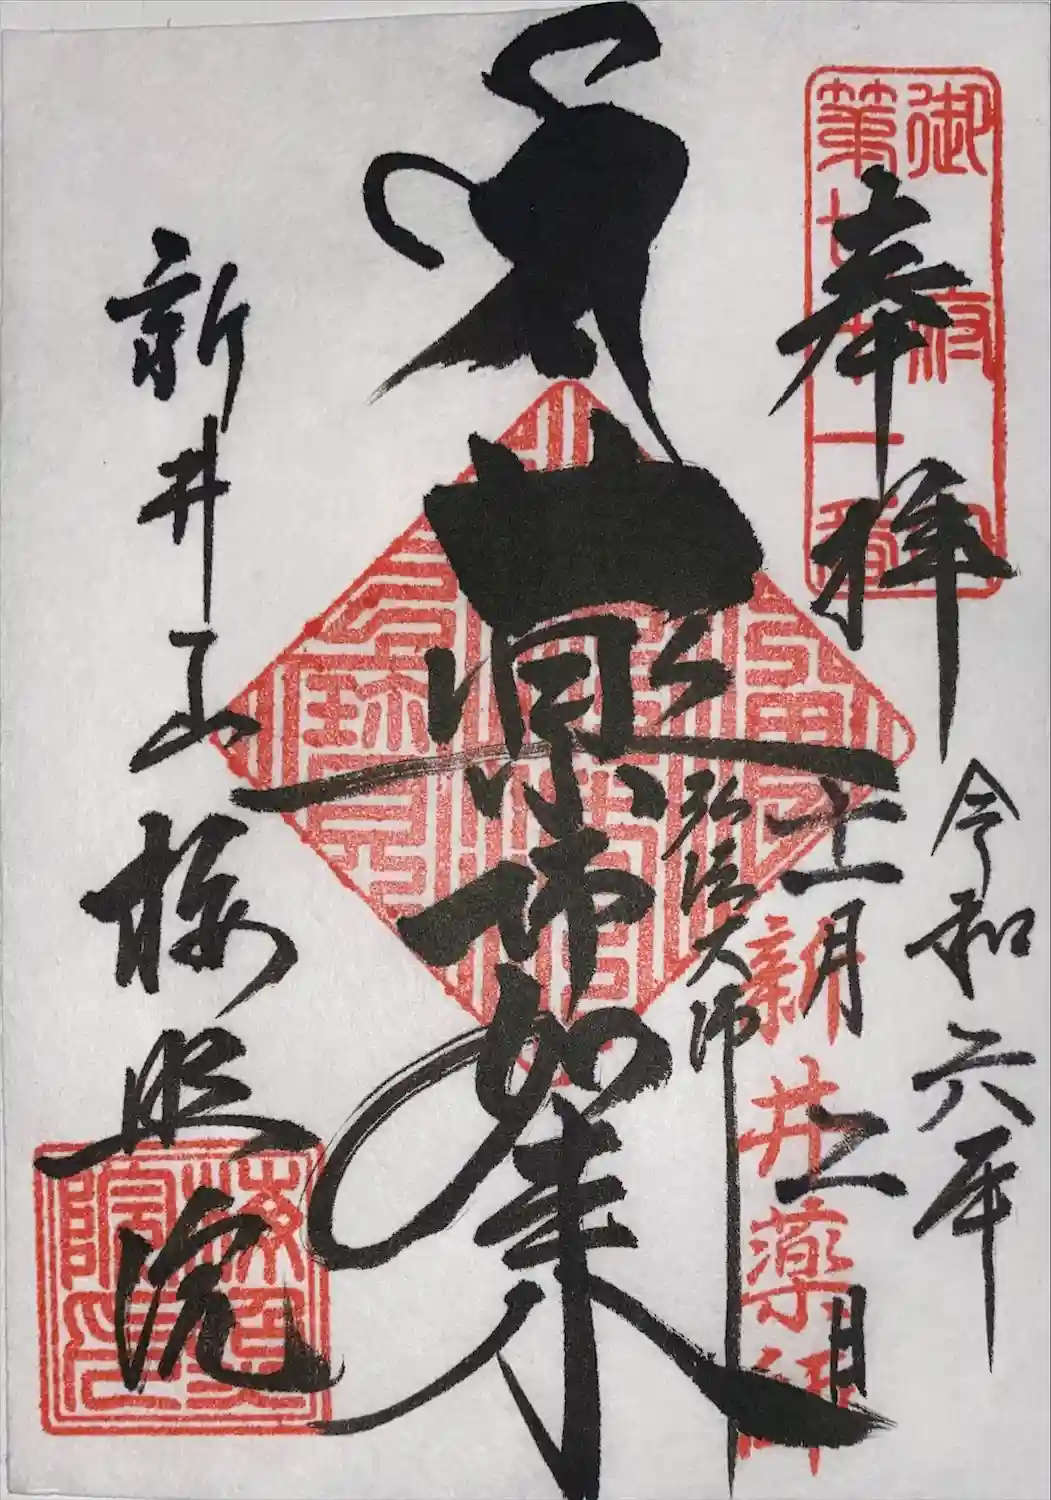 御府内
第七十一番
奉拝
令和六年
十一月二日
新井薬師
弘法大師
薬師如来
新井山梅照院